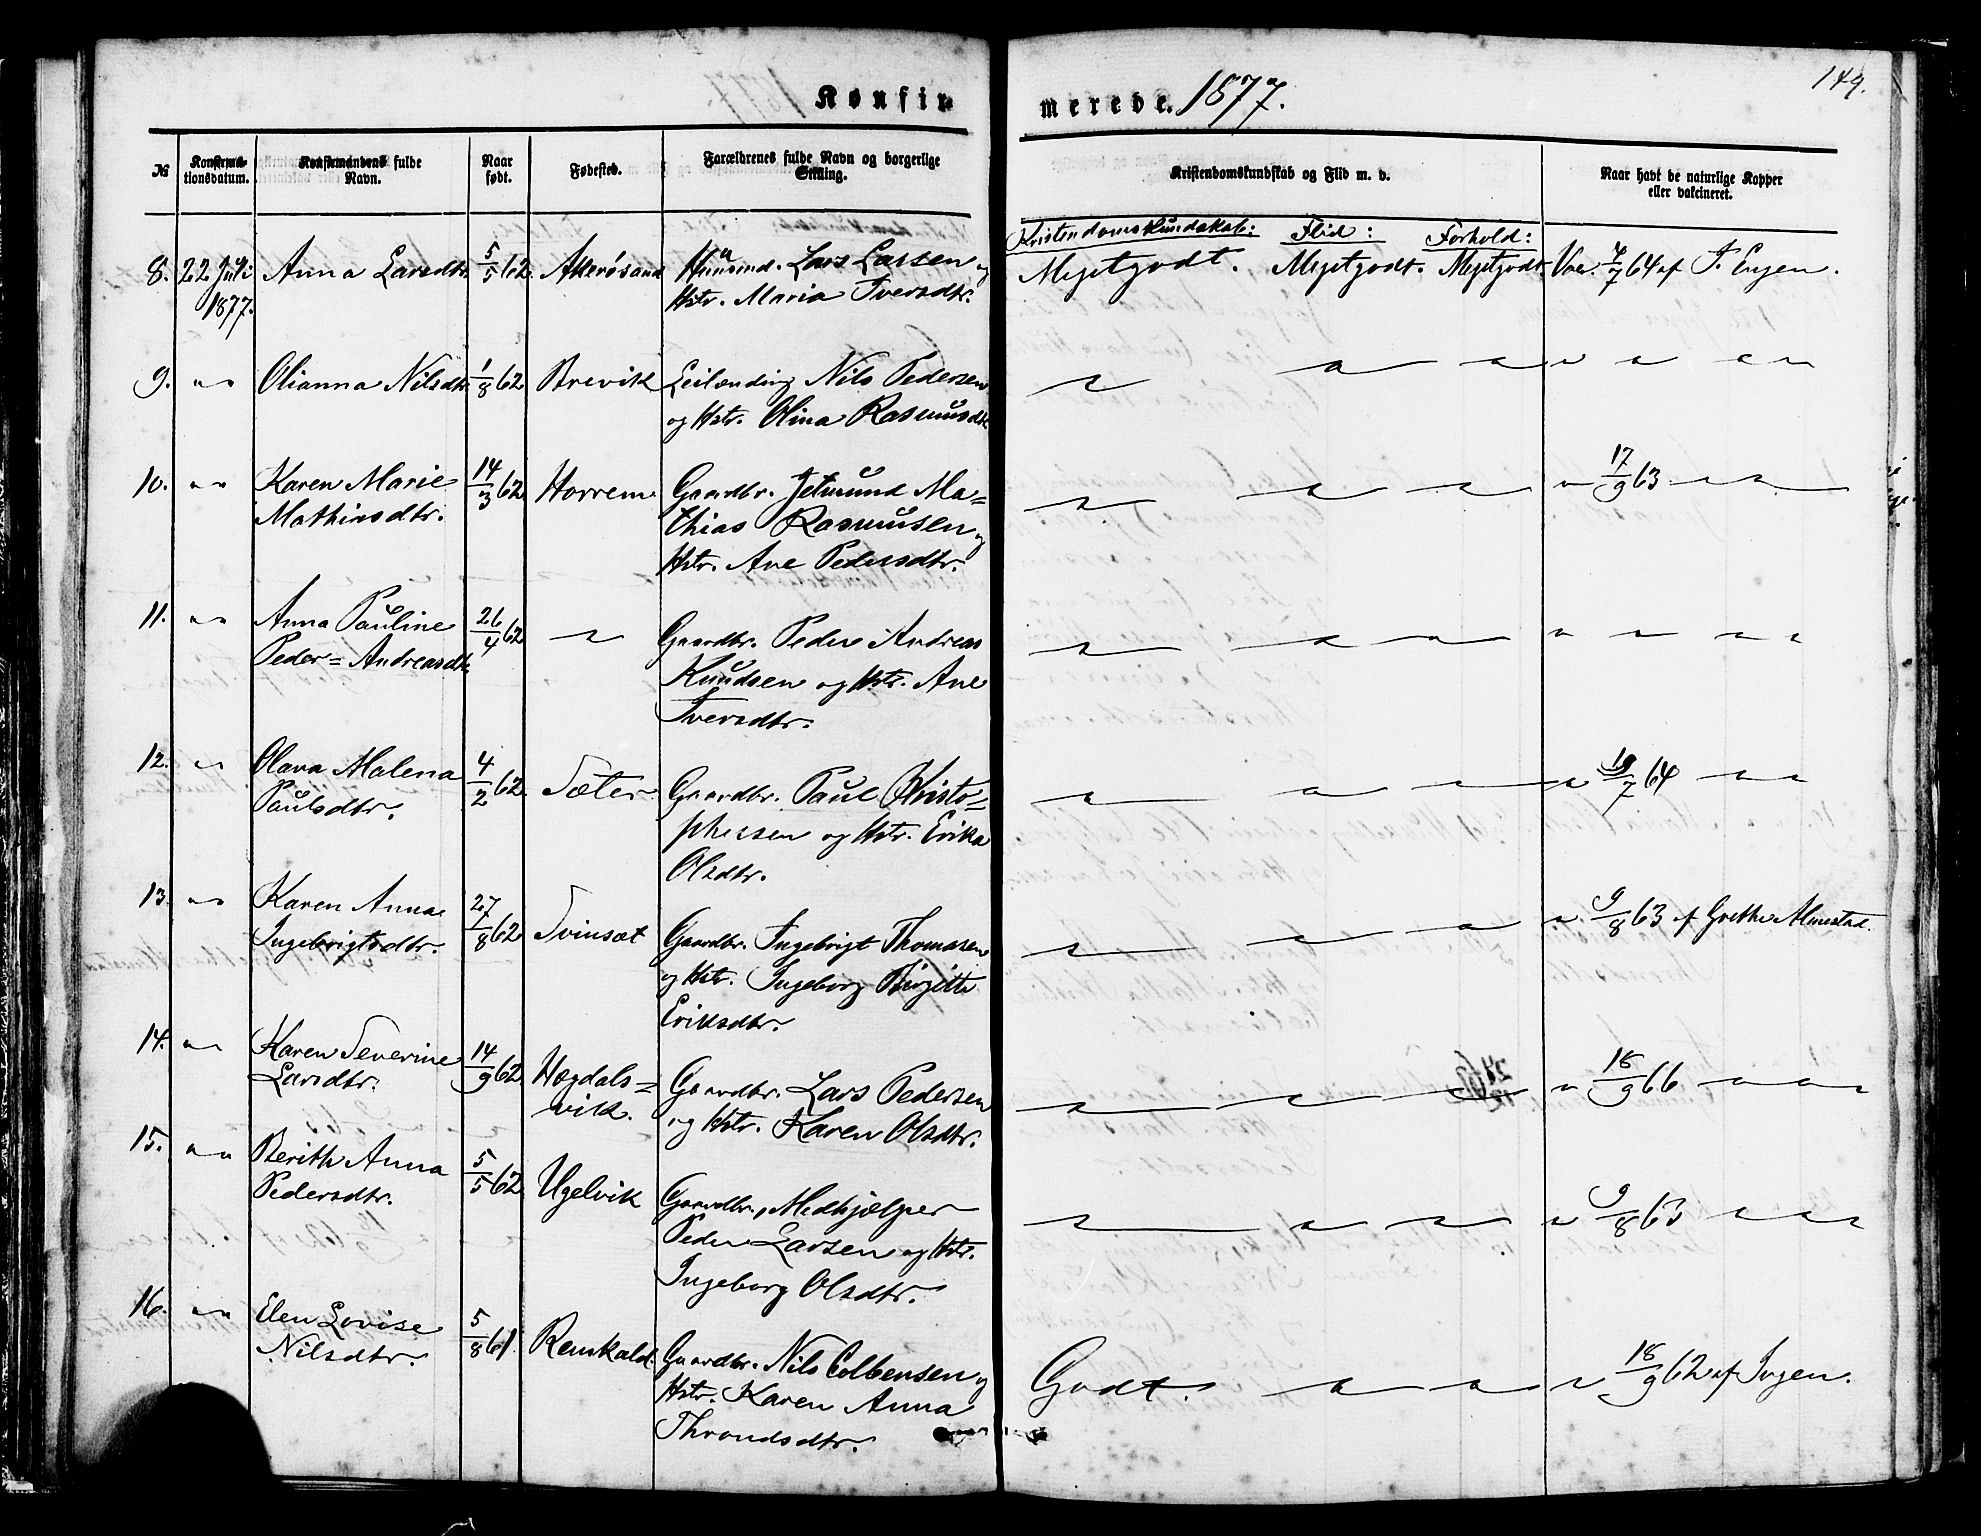 Konfir
merede. 1877.
149.
No
Konfirma-
tionsdatum.
Konfirmandens fulde
Navn.
Naar
født.
Fødested.
Forældrenes fulde Navn og borgerlige
Stilling.
Kristendomskundskab og Flid m. v.
Naar havt de naturlige Kopper
eller vakcineret.
Kristendomskundskab: Flid: Forhold:
8. 22 Juli 1877. Anna Larsdtr. 5/5 62. Akerøsund Huusmd. Lars Larsen og
Hstr. Maria Iversdtr. Megetgodt. Megetgodt. Megetgodt. Vac. 7/7 64 af I. Engen.
9. " " Olianna Nilsdtr. 1/8 62 Brevik Leilænding Nils Pedersen
og Hstr. Olina Rasmusdtr
10. " " Karen Marie 14/3 62 Horrem Gaardbr. Jetmund Ma=
Mathiasdtr. thias Rasmussen og
Hstr. Ane Pedersdtr. " 17/9 63 " "
11. " " Anna Pauline 26/4 62 " Gaardbr. Peder Andreas
Peder=Andreasdtr. Knudsen og Hstr. Ane
Iversdtr.
12. " Olava Malena 4/2 62. Sæter Gaardbr. Paul Kristo=
Paulsdtr. phersen og Hstr. Erika
Olsdtr. " 19/7 64 " "
13. " " Karen Anna 27/8 62 Svinsæt Gaardbr. Ingebrigt Thomasen
Ingebrigtsdtr. og Hstr. Ingeborg Birgitte
Eriksdtr. " 9/8 63 af Grethe Almestad.
14. " " Karen Severine 14/9 62 Hægdals=
Larsdtr. vik. Gaardbr. Lars Pedersen
og Hstr. Karen Olsdtr. " 18/9 66 " "
15. " " Berith Anna 5/5 62 Ugelvik Gaardbr., Medhjælper
Pedersdtr. Peder Larsen og Hstr.
Ingeborg Olsdtr. " 9/8 63 " "
16. " " Elen Lovise 5/8 61. Renskald. Gaardbr. Nils Colbensen og
Nilsdtr. Hstr. Karen Anna
Throndsdtr. Godt. " " " 18/9 62 af Engen.